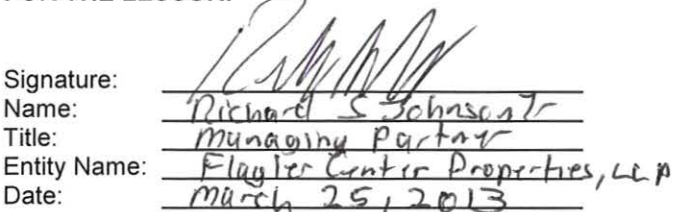 FOR THE LESSOR:
Signature:
Name: Richard S Johnson Jr
Title: Managing Partner
Entity Name: Flagler Center Properties, LLP
Date: March 25, 2013